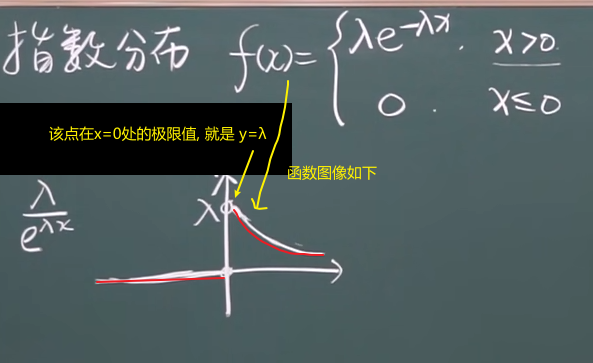 指数分布 f(x)= { λe^{-λx}. x>0.
0. x≤0
该点在x=0处的极限值, 就是 y=λ
函数图像如下
λ/e^{λx}
λ